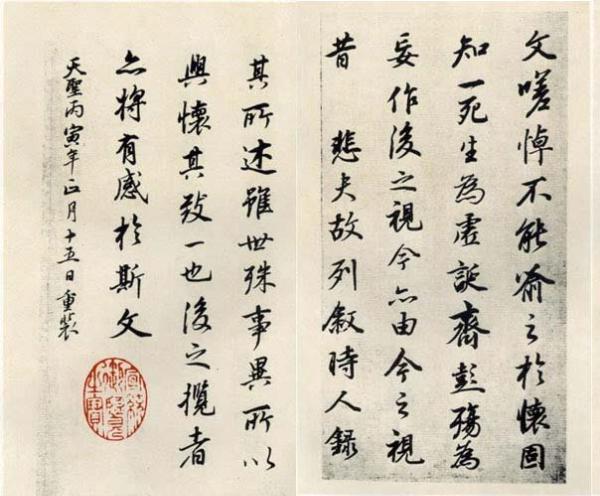 文嗟悼不能喻之於懷固
知一死生為虛誕齊彭殤為
妄作後之視今亦由今之視
昔 悲夫故列敘時人錄
其所述雖世殊事異所以
興懷其致一也後之攬者
亦將有感於斯文
天聖丙寅年正月十五日重裝
宣統御覽之寶